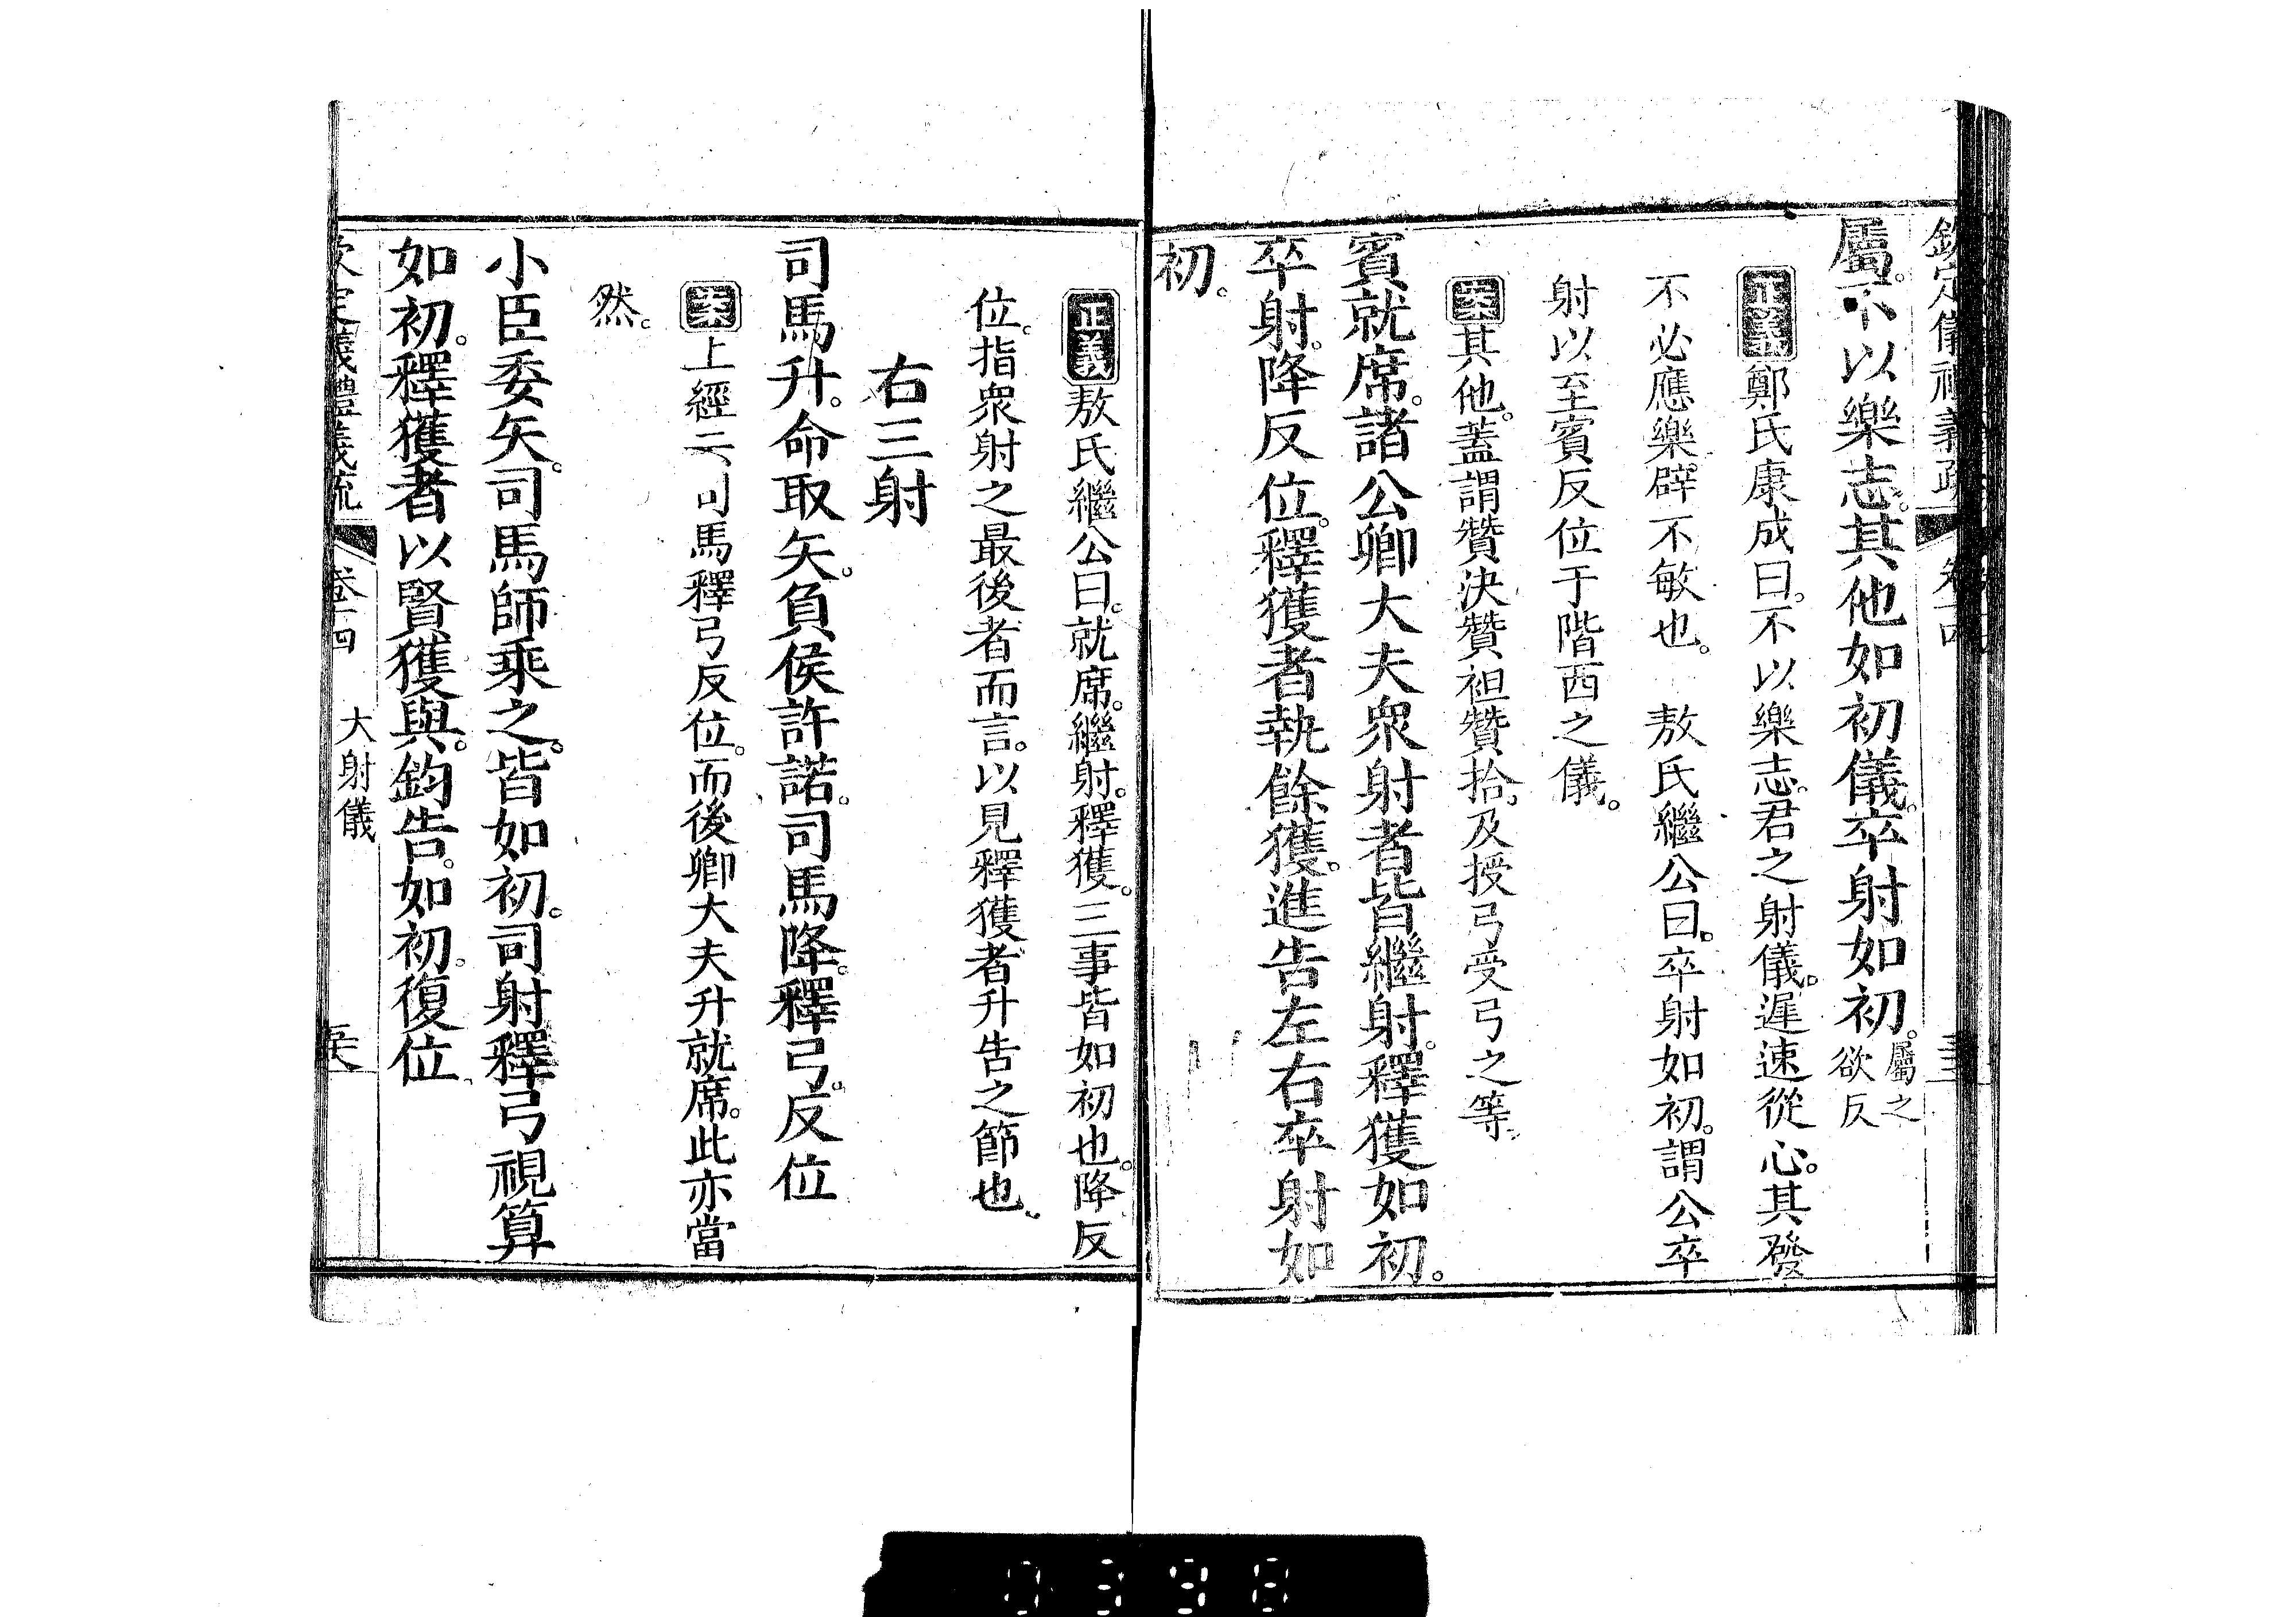 欽定儀禮義疏　卷十四
屬。不以樂志。其他如初儀。卒射如初。屬之欲反
正義　鄭氏康成曰。不以樂志。君之射儀。遲速從心。其發
不必應樂。辟不敏也。　敖氏繼公曰。卒射如初。謂公卒
射以至賓反位于階西之儀。
案　其他。蓋謂贊決贊袒贊拾。及授弓受弓之等。
賓就席。諸公卿大夫衆射者皆繼射。釋獲如初。
卒射。降反位。釋獲者執餘獲。進告左右卒射如
初。
正義　敖氏繼公曰。就席。繼射。釋獲。三事皆如初也。降反
位。指衆射之最後者而言。以見釋獲者升告之節也。
右三射
司馬升。命取矢。負侯許諾。司馬降。釋弓。反位
案　上經二、司馬釋弓反位。而後卿大夫升就席。此亦當
然。
小臣委矢。司馬師乘之。皆如初。司射釋弓視算
如初。釋獲者以賢獲與。鈞告。如初。復位
欽定儀禮義疏　卷十四　大射儀